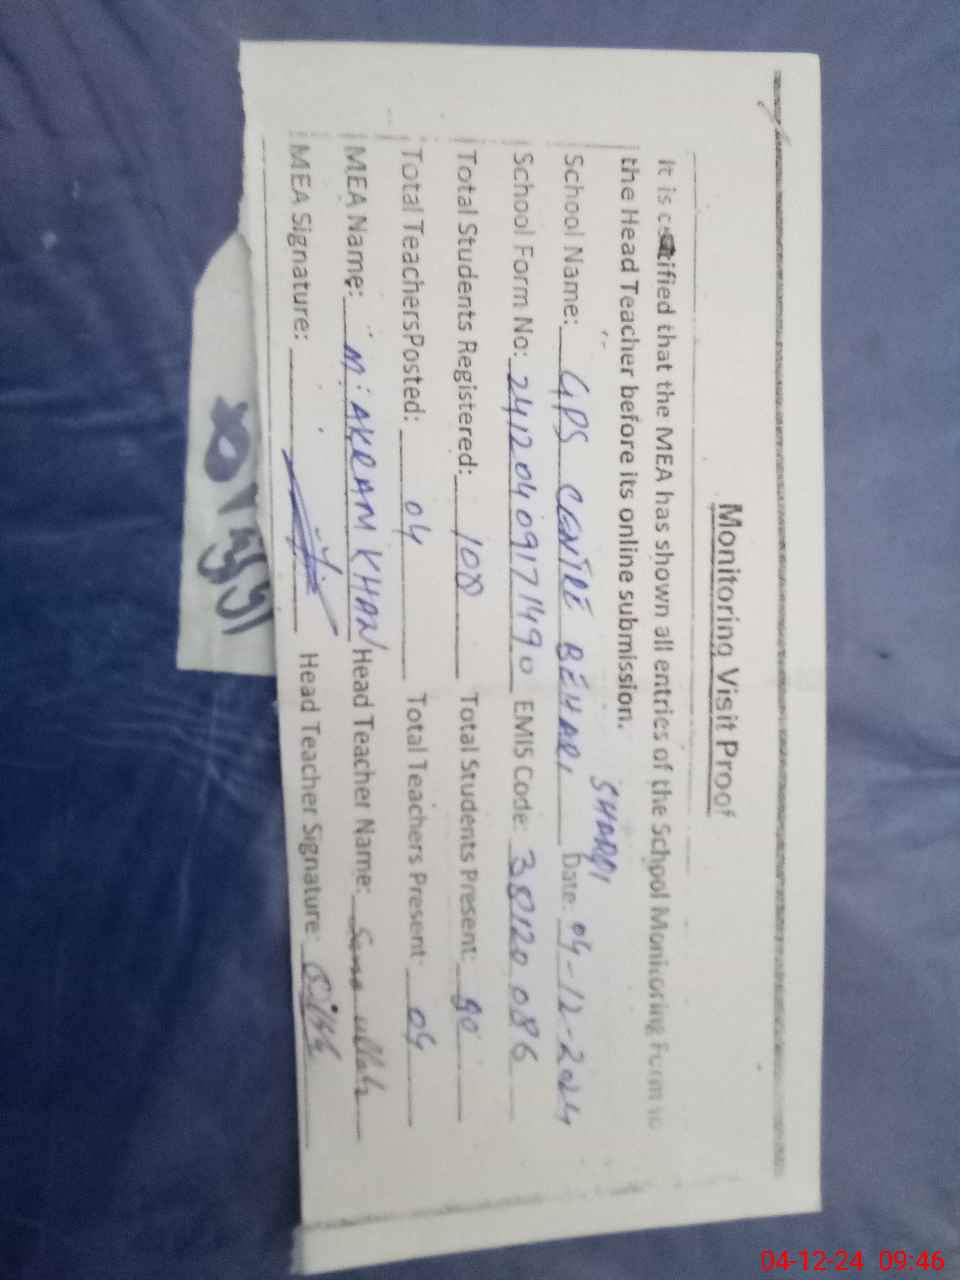 Monitoring Visit Proof
It is certified that the MEA has shown all entries of the School Monitoring Form to
the Head Teacher before its online submission.
SHARQI
School Name: GPS CENTRE BEHARI Date: 04-12-2024
School Form No: 24120409171490 EMIS Code: 38120086
Total Students Registered: 100 Total Students Present: 90
Total TeachersPosted: 04 Total Teachers Present: 04
MEA Name: M. AKRAM KHAN Head Teacher Name: Sana ullah
MEA Signature: Head Teacher Signature:
04-12-24 09:46